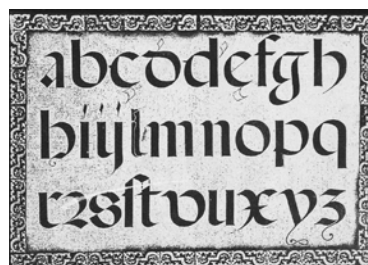 abcddefgh
hiijlmnopq
rꝛsſtvuxyz